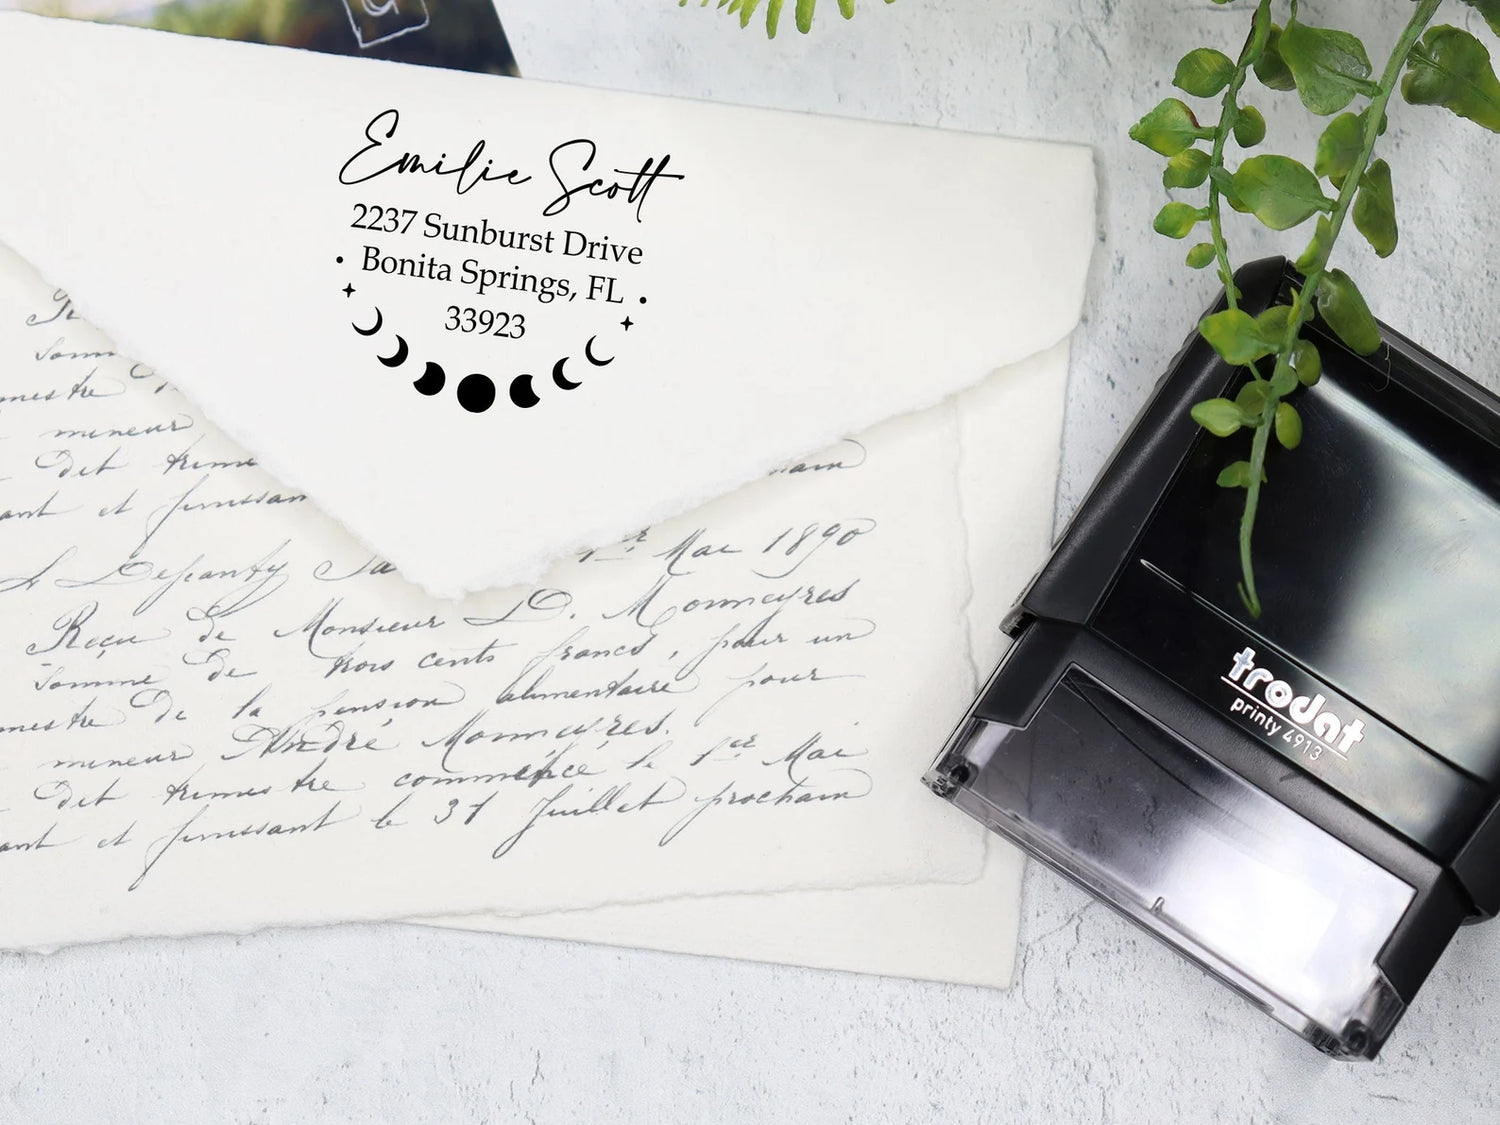 Emilie Scott
2237 Sunburst Drive
Bonita Springs, FL
33923
mineur
Dit trime
ant et finissant
1er Mai 1890
Reçu de Monsieur D. Monneyres
Somme de trois cents francs, pour un
mestre de la pension alimentaire pour
mineur André Monneyres.
Dit trimestre commencé le 1er Mai
ant et finissant le 31 Juillet prochain
trodat
printy 4913